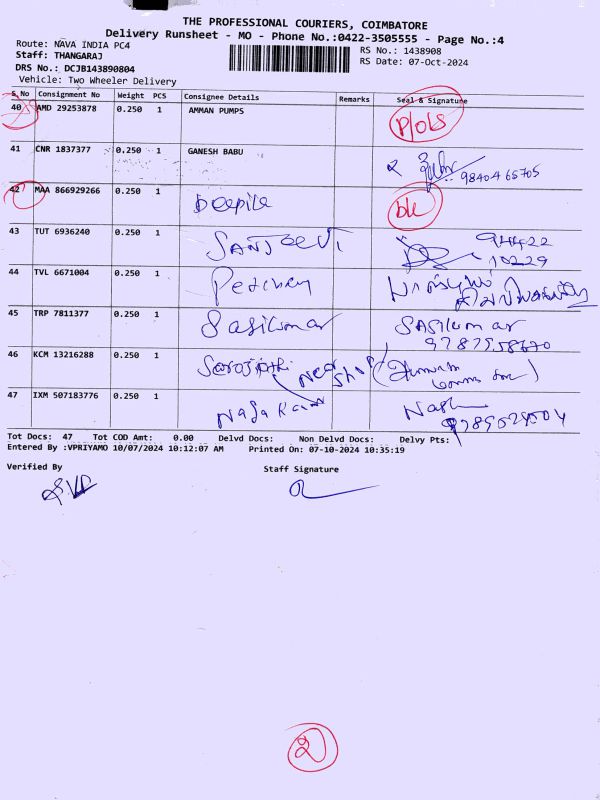 THE PROFESSIONAL COURIERS, COIMBATORE
Delivery Runsheet - MO - Phone No.:0422-3505555 - Page No.:4
Route: NAVA INDIA PC4
Staff: THANGARAJ
DRS No.: DCJB143890804
Vehicle: Two Wheeler Delivery
RS No.: 1438908
RS Date: 07-Oct-2024
S.No Consignment No Weight PCS Consignee Details Remarks Seal & Signature
40 AMD 29253878 0.250 1 AMMAN PUMPS
41 CNR 1837377 0.250 1 GANESH BABU 98404 65705
42 MAA 866929266 0.250 1 Deepika
43 TUT 6936240 0.250 1 SANJEEVI 94422
10229
44 TVL 6671004 0.250 1
45 TRP 7811377 0.250 1 Sasikumar SASIKUMAR
46 KCM 13216288 0.250 1 Near Shop
47 IXM 507183776 0.250 1
Tot Docs: 47 Tot COD Amt: 0.00 Delvd Docs: Non Delvd Docs: Delvy Pts:
Entered By :VPRIYAMO 10/07/2024 10:12:07 AM Printed On: 07-10-2024 10:35:19
Verified By Staff Signature
2